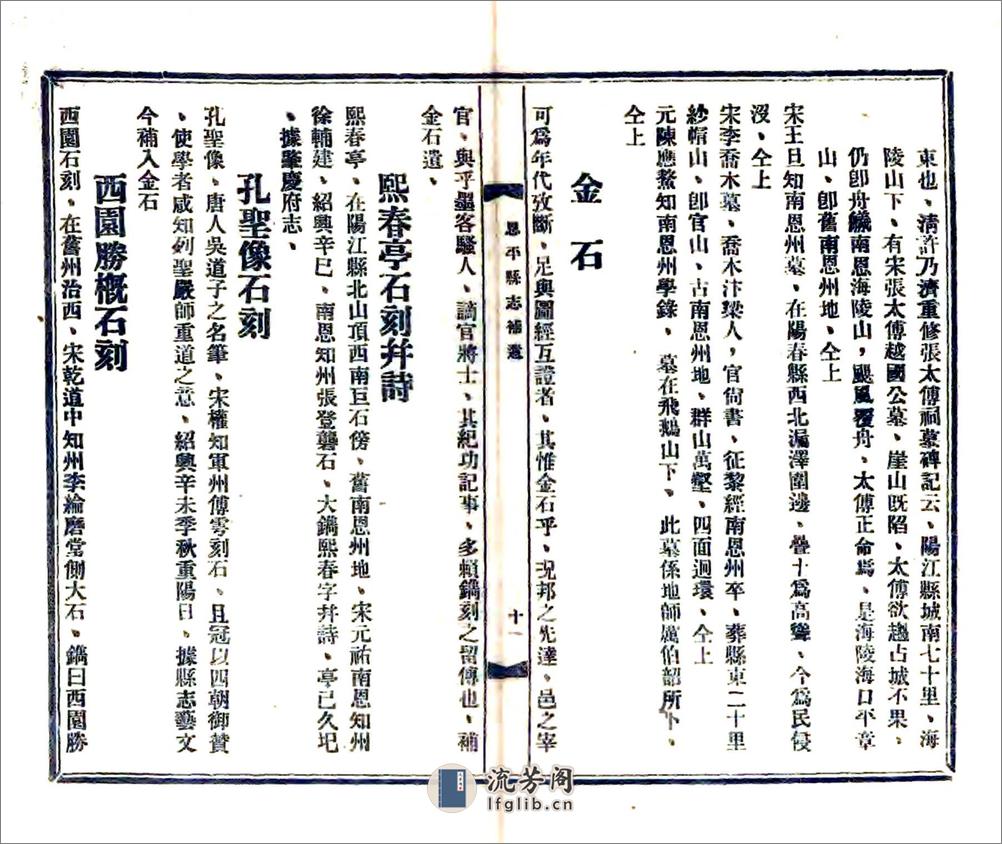 東也、清許乃濟重修張太傅祠墓碑記云、陽江縣城南七十里、海
陵山下、有宋張太傅越國公墓、崖山既陷、太傅欲趨占城不果、
仍卽舟艤南恩海陵山、颶風覆舟、太傅正命焉、是海陵海口平章
山、卽舊南恩州地、仝上
宋王旦知南恩州墓、在陽春縣西北漏澤園邊、疊十爲高聳、今爲民侵
沒、仝上
宋李喬木墓、喬木汴梁人、官尙書、征黎經南恩州卒、葬縣東二十里
紗帽山、卽官山、古南恩州地、群山萬壑、四面迴環、仝上
元陳應鰲知南恩州學錄、墓在飛鵝山下、此墓係地師厲伯韶所卜、
仝上
金石
可爲年代攷斷、足與圖經互證者、其惟金石乎、況邦之先達、邑之宰
恩平縣志補遺
十一
官、與乎墨客騷人、謫官將士、其紀功記事、多賴鐫刻之留傳也、補
金石遺、
熙春亭石刻幷詩
熙春亭、在陽江縣北山頂西南巨石傍、舊南恩州地、宋元祐南恩知州
徐輔建、紹興辛巳、南恩知州張登礱石、大鐫熙春字幷詩、亭已久圯
、據肇慶府志、
孔聖像石刻
孔聖像、唐人吳道子之名筆、宋權知軍州傅雱刻石、且冠以四朝御贊
、使學者咸知列聖嚴師重道之意、紹興辛未季秋重陽日、據縣志藝文
今補入金石
西園勝槪石刻
西園石刻、在舊州治西、宋乾道中知州李綸磨堂側大石、鐫曰西園勝
流芳阁
lfglib.cn